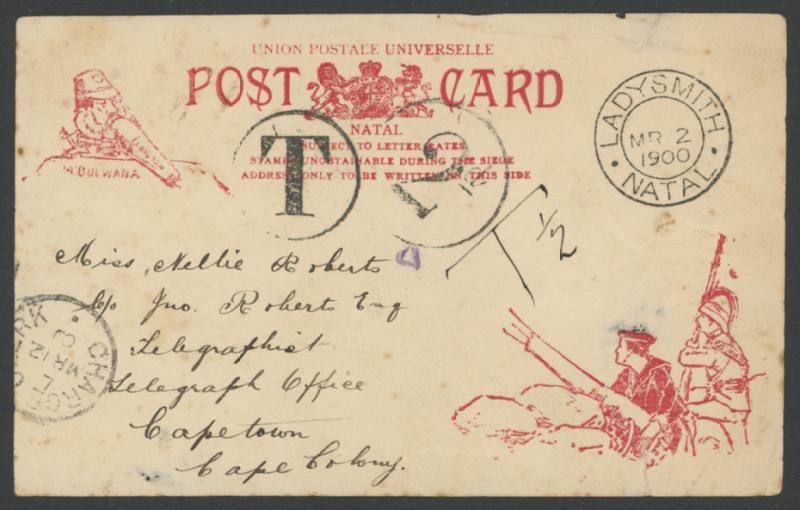 UNION POSTALE UNIVERSELLE
POST CARD
NATAL
SUBJECT TO LETTER RATES
STAMPS UNOBTAINABLE DURING THE SIEGE
ADDRESS ONLY TO BE WRITTEN ON THIS SIDE
M'BULWANA
T
LADYSMITH
MR 2
1900
NATAL
T 1/2
Miss Nellie Roberts
C/o Jno. Roberts Esq
Telegraphist
Telegraph Office
Capetown
Cape Colony.
CHARGE
MR 12